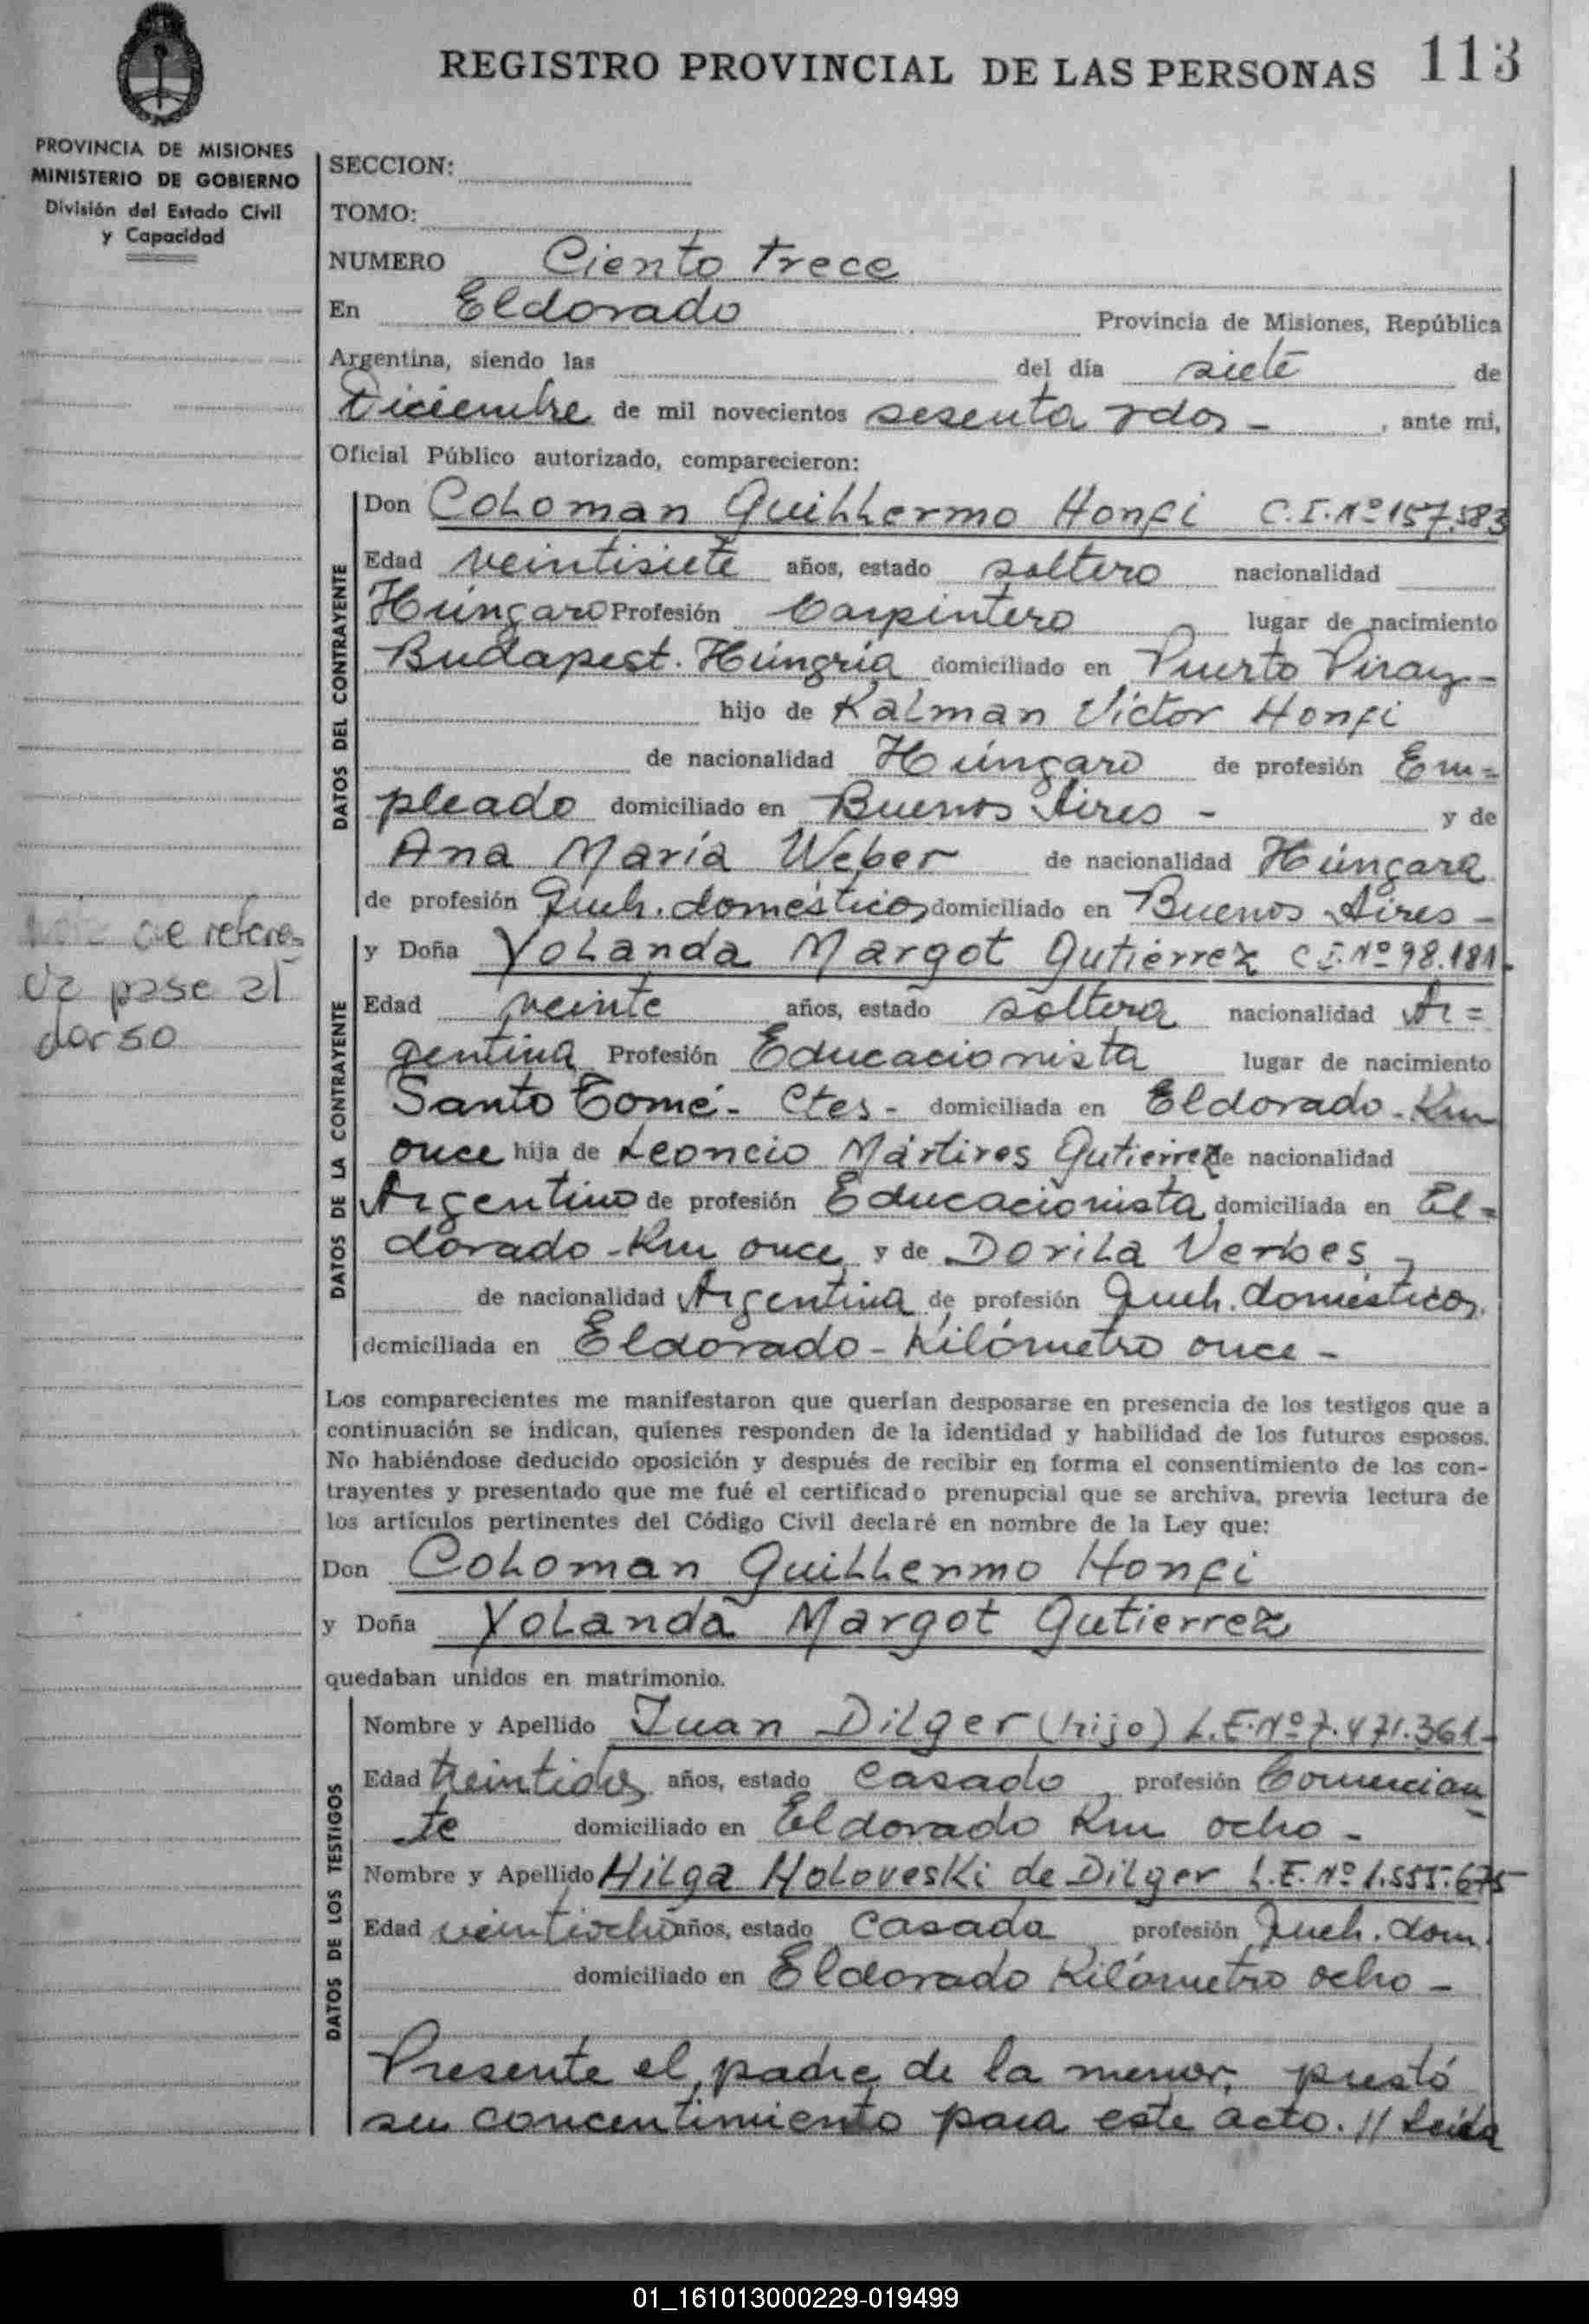 REGISTRO PROVINCIAL DE LAS PERSONAS 113
PROVINCIA DE MISIONES
MINISTERIO DE GOBIERNO
División del Estado Civil
y Capacidad
SECCION:
TOMO:
NUMERO Ciento trece
En Eldorado Provincia de Misiones, República
Argentina, siendo las del día siete de
Diciembre de mil novecientos sesenta y dos - , ante mi,
Oficial Público autorizado, comparecieron:
DATOS DEL CONTRAYENTE
Don Coloman Guillermo Honfi C.I. Nº 157.583
Edad veintisiete años, estado soltero nacionalidad
Húngaro Profesión Carpintero lugar de nacimiento
Budapest. Húngria domiciliado en Puerto Piray -
hijo de Kalman Víctor Honfi
de nacionalidad Húngaro de profesión Em=
pleado domiciliado en Buenos Aires - y de
Ana María Weber de nacionalidad Húngara
de profesión Queh. domésticos domiciliado en Buenos Aires -
de referen
cia pase al
dorso
DATOS DE LA CONTRAYENTE
y Doña Yolanda Margot Gutiérrez C.I. Nº 98.181.
Edad veinte años, estado soltera nacionalidad Ar=
gentina Profesión Educacionista lugar de nacimiento
Santo Tomé - Ctes - domiciliada en Eldorado - Km
once hija de Leoncio Mártires Gutierrez de nacionalidad
Argentino de profesión Educacionista domiciliada en El=
dorado - Km once y de Dorila Verbes -
de nacionalidad Argentina de profesión Queh. domésticos
domiciliada en Eldorado - Kilómetro once -
Los comparecientes me manifestaron que querían desposarse en presencia de los testigos que a
continuación se indican, quienes responden de la identidad y habilidad de los futuros esposos.
No habiéndose deducido oposición y después de recibir en forma el consentimiento de los con-
trayentes y presentado que me fué el certificado prenupcial que se archiva, previa lectura de
los artículos pertinentes del Código Civil declaré en nombre de la Ley que:
Don Coloman Guillermo Honfi
y Doña Yolanda Margot Gutierrez
quedaban unidos en matrimonio.
DATOS DE LOS TESTIGOS
Nombre y Apellido Juan Dilger (hijo) L.E. Nº 7.471.361-
Edad treintidos años, estado Casado profesión Comercian
te domiciliado en Eldorado Km ocho -
Nombre y Apellido Hilga Holoveski de Dilger L.E. Nº 1.555.675
Edad veintiocho años, estado Casada profesión Queh. dom.
domiciliado en Eldorado Kilómetro ocho -
Presente el padre de la menor, prestó
su concentimiento para este acto. // Leída
01_161013000229-019499